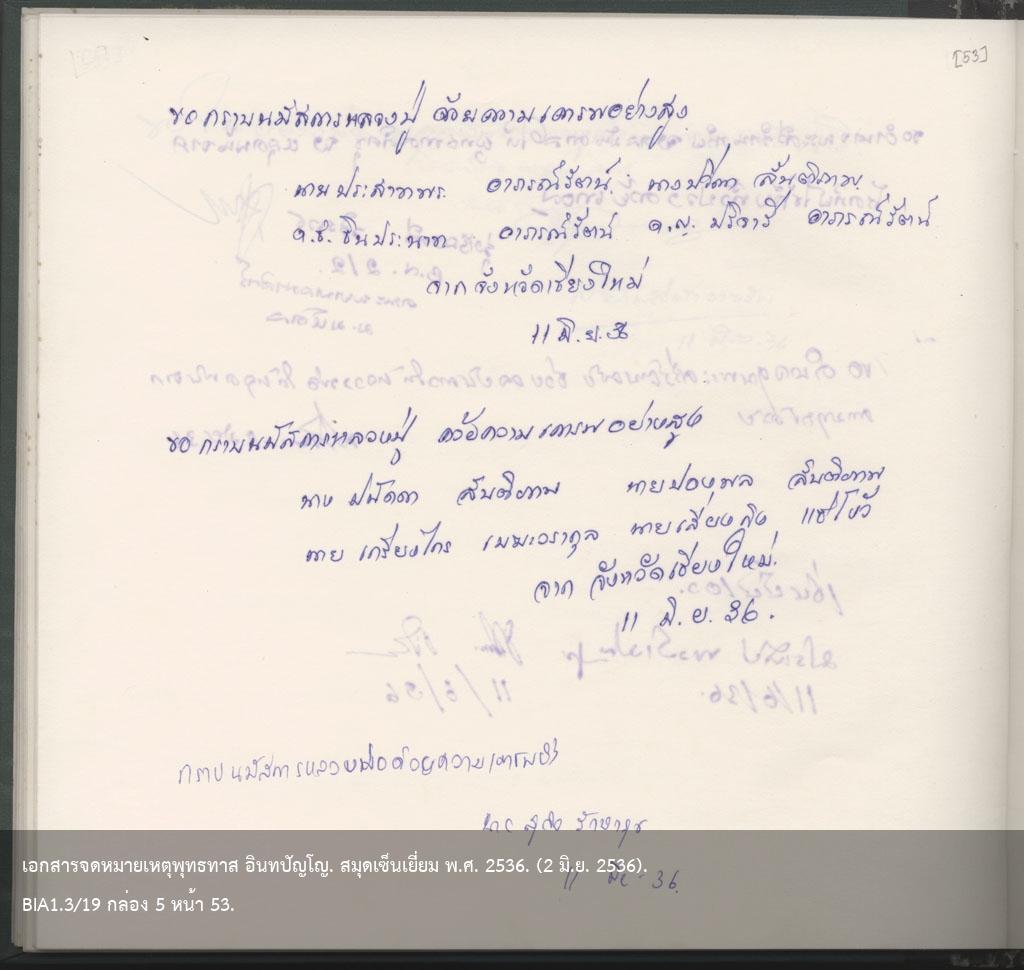 [53]
ขอกราบนมัสการหลวงปู่ ด้วยความเคารพอย่างสูง
นายประสาทพร อาภรณ์รัตน์ นางปวีดา สันติภาพ
ด.ช. ชินประนาช อาภรณ์รัตน์ ด.ญ. ปริชารี อาภรณ์รัตน์
จาก จังหวัดเชียงใหม่
11 มิ.ย. 36
ขอกราบนมัสการหลวงปู่ ด้วยความเคารพอย่างสูง
นาง ปนัดดา สันติภาพ นายปองพล สันติภาพ
นาย เกรียงไกร เมฆะวรากุล นายเสี่ยงกิง แซ่โง้ว
จาก จังหวัดเชียงใหม่.
11 มิ.ย. 36.
กราบนมัสการหลวงพ่อด้วยความเคารพยิ่ง
11 มิย 36.
เอกสารจดหมายเหตุพุทธทาส อินทปัญโญ. สมุดเซ็นเยี่ยม พ.ศ. 2536. (2 มิ.ย. 2536).
BIA1.3/19 กล่อง 5 หน้า 53.